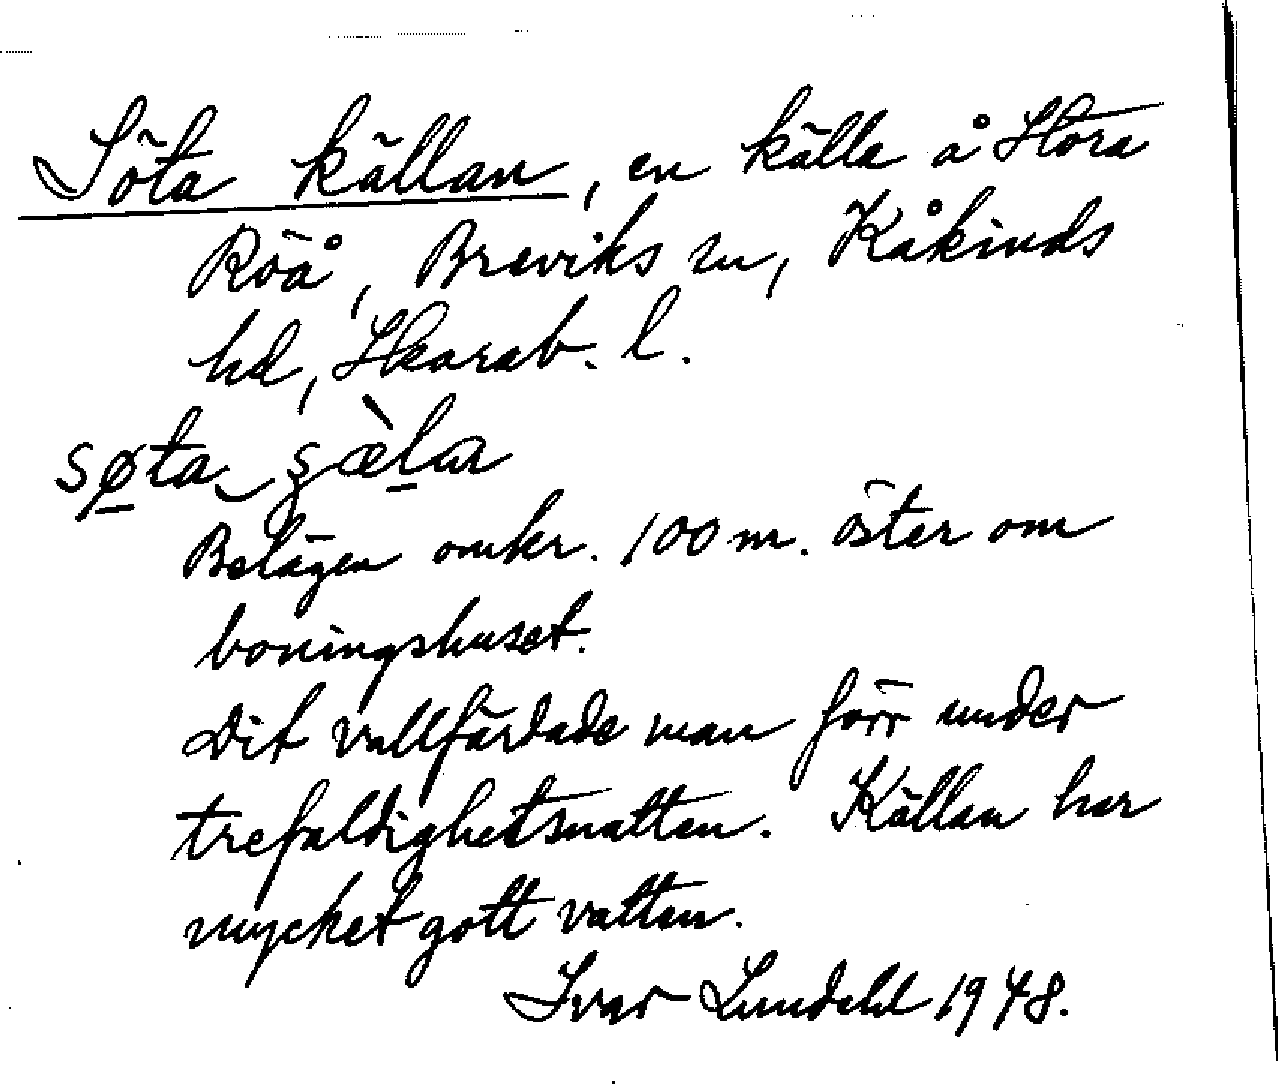 Söta källan, en källa å Stora
Röå, Breviks sn, Kåkinds
hd, Skarab. l.
søta
Belägen omkr. 100 m. öster om
boningshuset.
Dit vallfärdade man förr under
trefaldighetsnatten. Källan har
mycket gott vatten.
Ivar Lundahl 1948.